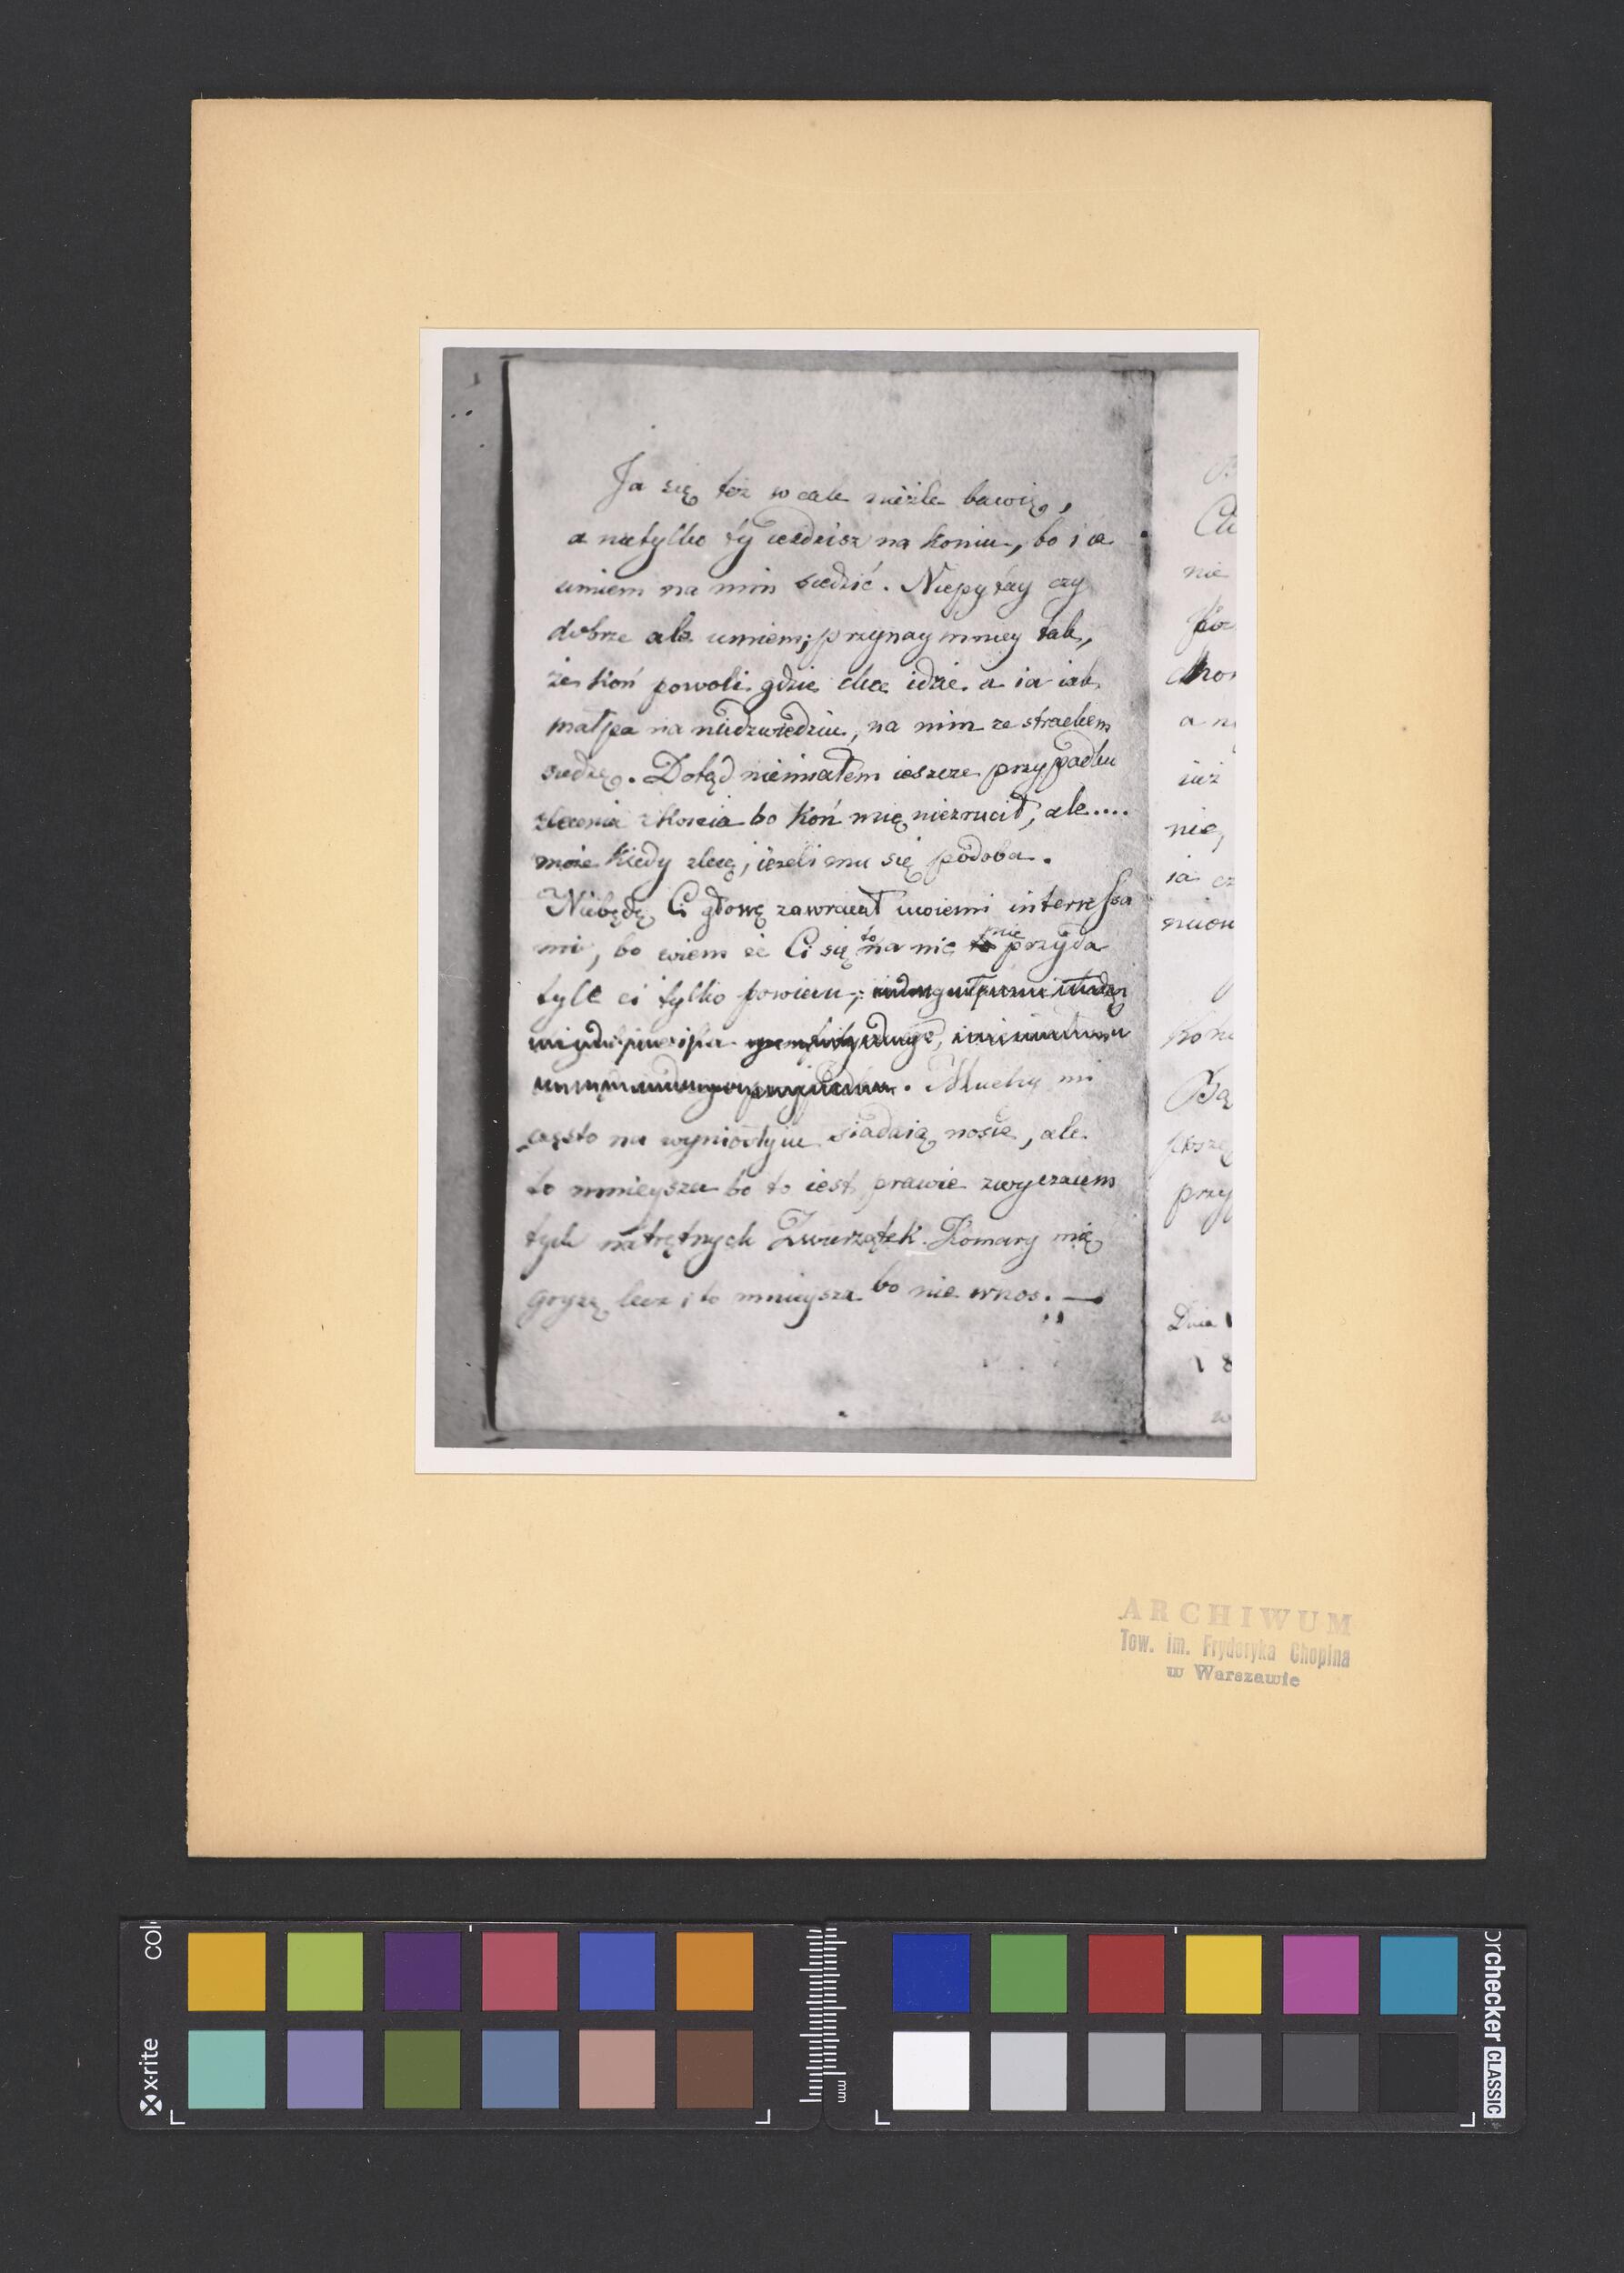 Ja się też wcale nieźle bawię,
a nietylko ty iezdzisz na koniu, bo i ia
umiem na nim siedzić. Niepytay czy
dobrze ale umiem; przynaymniey tak,
że koń powoli gdzie chce idzie a ia iak
małpa na niedzwiedziu, na nim ze strachem
siedzę. Dotąd niemiałem ieszcze przypadku
zlecenia z konia bo koń mię niezrucił, ale....
może kiedy zlecę, ieżeli mu się podoba.
Niebędę Ci głowę zawracał moiemi interessa
mi, bo wiem że Ci się to na nic nie przyda
tyle ci tylko powiem;
. Muchy mi
często na wyniosłym siadaią nosie, ale
to mnieysza bo to iest prawie zwyczaiem
tych natrętnych Zwierzątek. Komary mię
gryzą lecz i to mnieysza bo nie w nos. —
Cie
nie
a ni
iuż
nie,
ia cz
koń
Bą
przy
Dnia 1
1 8
ARCHIWUM
Tow. im. Fryderyka Chopina
w Warszawie
x-rite
col
mm
orchecker CLASSIC